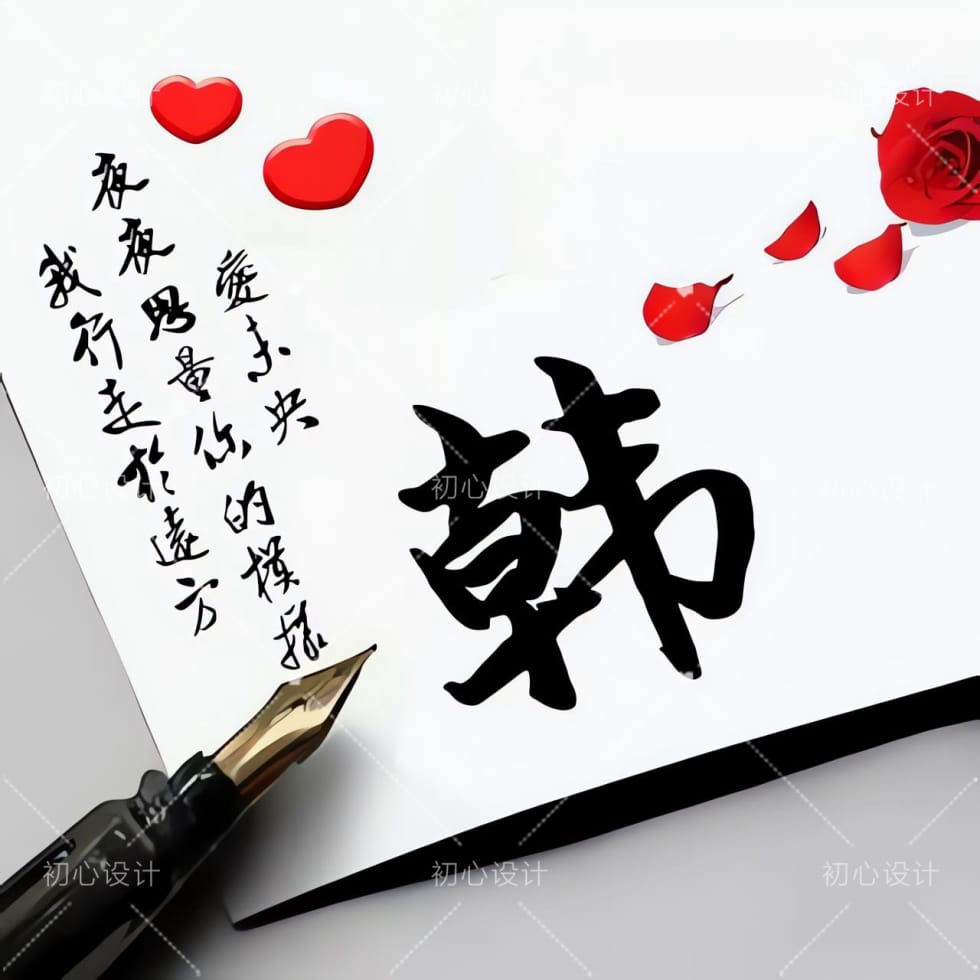 初心设计 初心设计 初心设计
我行走於遠方
夜夜思量你的模樣
愛未央
韩
初心设计 初心设计 初心设计
初心设计 初心设计 初心设计